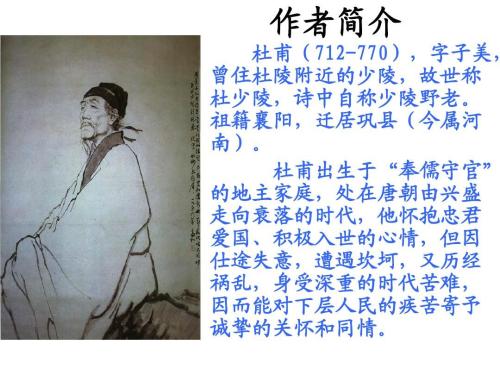 作者简介
杜甫（712-770），字子美，
曾住杜陵附近的少陵，故世称
杜少陵，诗中自称少陵野老。
祖籍襄阳，迁居巩县（今属河
南）。
杜甫出生于“奉儒守官”
的地主家庭，处在唐朝由兴盛
走向衰落的时代，他怀抱忠君
爱国、积极入世的心情，但因
仕途失意，遭遇坎坷，又历经
祸乱，身受深重的时代苦难，
因而能对下层人民的疾苦寄予
诚挚的关怀和同情。